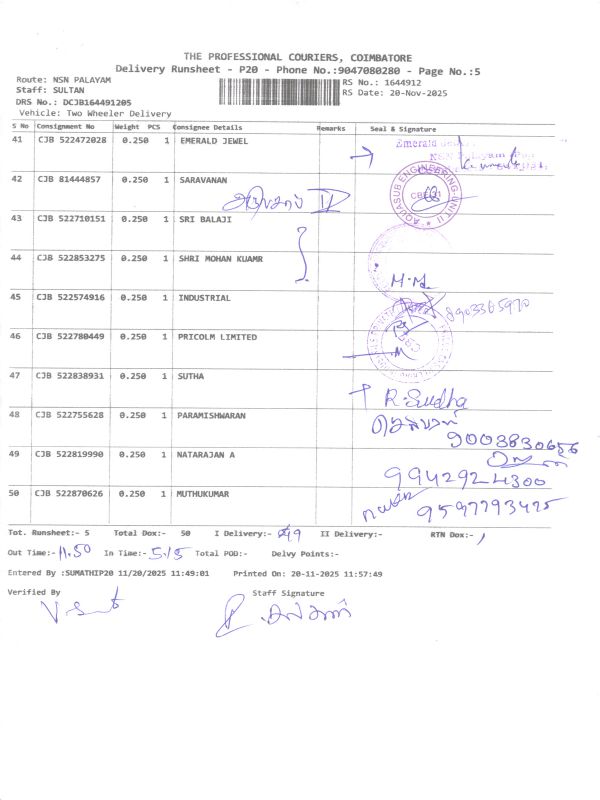 THE PROFESSIONAL COURIERS, COIMBATORE
Delivery Runsheet - P20 - Phone No.:9047080280 - Page No.:5
Route: NSN PALAYAM RS No.: 1644912
Staff: SULTAN RS Date: 20-Nov-2025
DRS No.: DCJB164491205
Vehicle: Two Wheeler Delivery
S No Consignment No Weight PCS Consignee Details Remarks Seal & Signature
41 CJB 522472028 0.250 1 EMERALD JEWEL Emerald
42 CJB 81444857 0.250 1 SARAVANAN II AQUASUB ENGINEERING-UNIT II
43 CJB 522710151 0.250 1 SRI BALAJI
44 CJB 522853275 0.250 1 SHRI MOHAN KUAMR
45 CJB 522574916 0.250 1 INDUSTRIAL 8903365970
46 CJB 522780449 0.250 1 PRICOLM LIMITED
47 CJB 522838931 0.250 1 SUTHA R. Sudha
48 CJB 522755628 0.250 1 PARAMISHWARAN 9003830656
49 CJB 522819990 0.250 1 NATARAJAN A 9942924300
50 CJB 522870626 0.250 1 MUTHUKUMAR 9597793475
Tot. Runsheet:- 5 Total Dox:- 50 I Delivery:- 49 II Delivery:- RTN Dox:- 1
Out Time:- 11.50 In Time:- 5.15 Total POD:- Delvy Points:-
Entered By :SUMATHIP20 11/20/2025 11:49:01 Printed On: 20-11-2025 11:57:49
Verified By Staff Signature